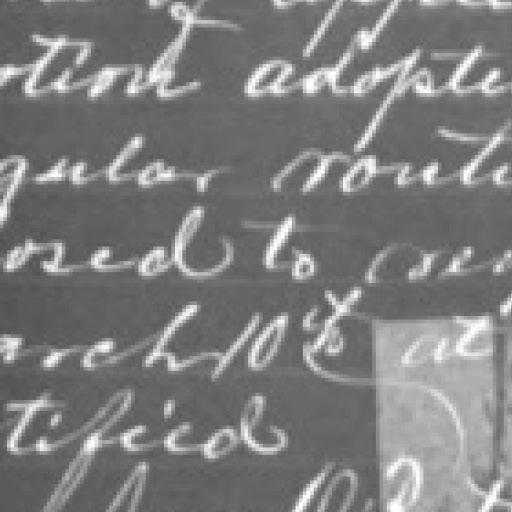 otion adopte
gular route
osed to ren
arch 10th at
tified